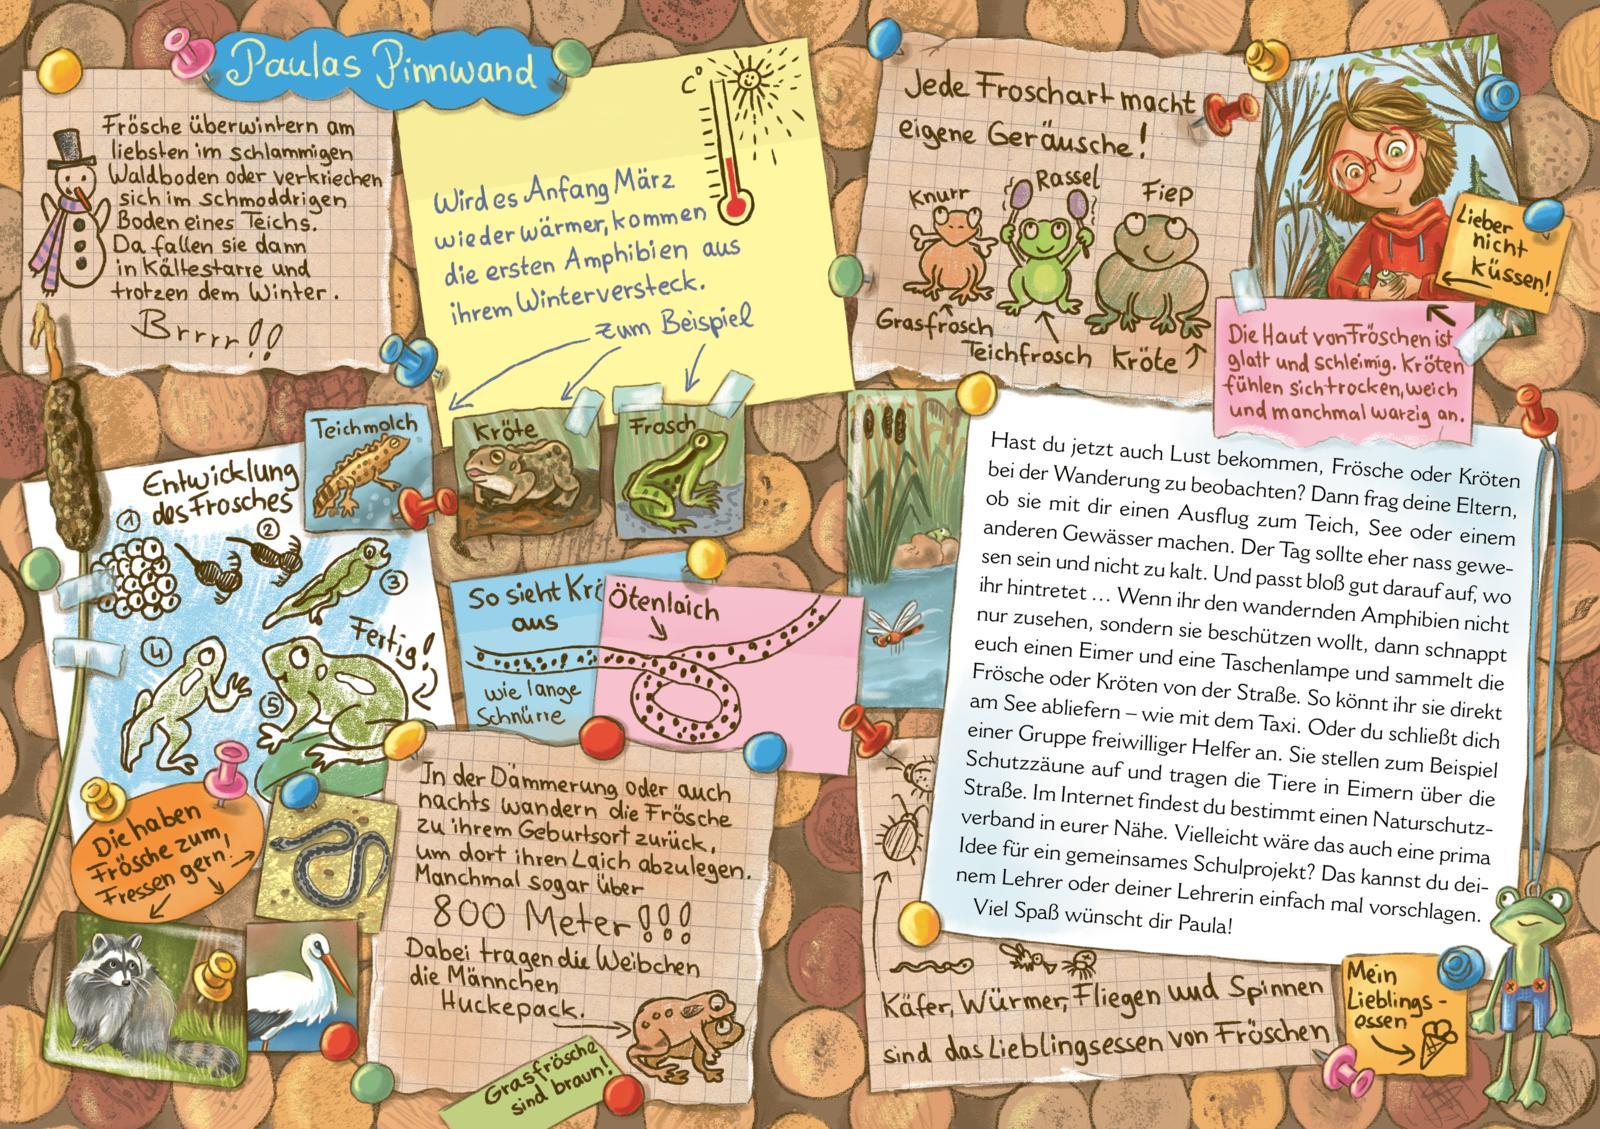 Paulas Pinnwand
Frösche überwintern am
liebsten im schlammigen
Waldboden oder verkriechen
sich im schmoddrigen
Boden eines Teichs.
Da fallen sie dann
in Kältestarre und
trotzen dem Winter.
Brrrr!!
C°
Wird es Anfang März
wieder wärmer, kommen
die ersten Amphibien aus
ihrem Winterversteck.
zum Beispiel
Teichmolch
Kröte
Frosch
Jede Froschart macht
eigene Geräusche!
Knurr
Rassel
Fiep
Grasfrosch
Teichfrosch
Kröte
Lieber
nicht
küssen!
Die Haut von Fröschen ist
glatt und schleimig. Kröten
fühlen sich trocken, weich
und manchmal warzig an.
Entwicklung
des Frosches
1
2
3
4
5
Fertig!
So sieht Krö
aus
Ötenlaich
wie lange
Schnürre
Die haben
Frösche zum
Fressen gern!
In der Dämmerung oder auch
nachts wandern die Frösche
zu ihrem Geburtsort zurück,
um dort ihren Laich abzulegen.
Manchmal sogar über
800 Meter!!!
Dabei tragen die Weibchen
die Männchen
Huckepack.
Grasfrösche
sind braun!
Hast du jetzt auch Lust bekommen, Frösche oder Kröten
bei der Wanderung zu beobachten? Dann frag deine Eltern,
ob sie mit dir einen Ausflug zum Teich, See oder einem
anderen Gewässer machen. Der Tag sollte eher nass gewe-
sen sein und nicht zu kalt. Und passt bloß gut darauf auf, wo
ihr hintretet … Wenn ihr den wandernden Amphibien nicht
nur zusehen, sondern sie beschützen wollt, dann schnappt
euch einen Eimer und eine Taschenlampe und sammelt die
Frösche oder Kröten von der Straße. So könnt ihr sie direkt
am See abliefern – wie mit dem Taxi. Oder du schließt dich
einer Gruppe freiwilliger Helfer an. Sie stellen zum Beispiel
Schutzzäune auf und tragen die Tiere in Eimern über die
Straße. Im Internet findest du bestimmt einen Naturschutz-
verband in eurer Nähe. Vielleicht wäre das auch eine prima
Idee für ein gemeinsames Schulprojekt? Das kannst du dei-
nem Lehrer oder deiner Lehrerin einfach mal vorschlagen.
Viel Spaß wünscht dir Paula!
Käfer, Würmer, Fliegen und Spinnen
sind das Lieblingsessen von Fröschen
Mein
Lieblings-
essen